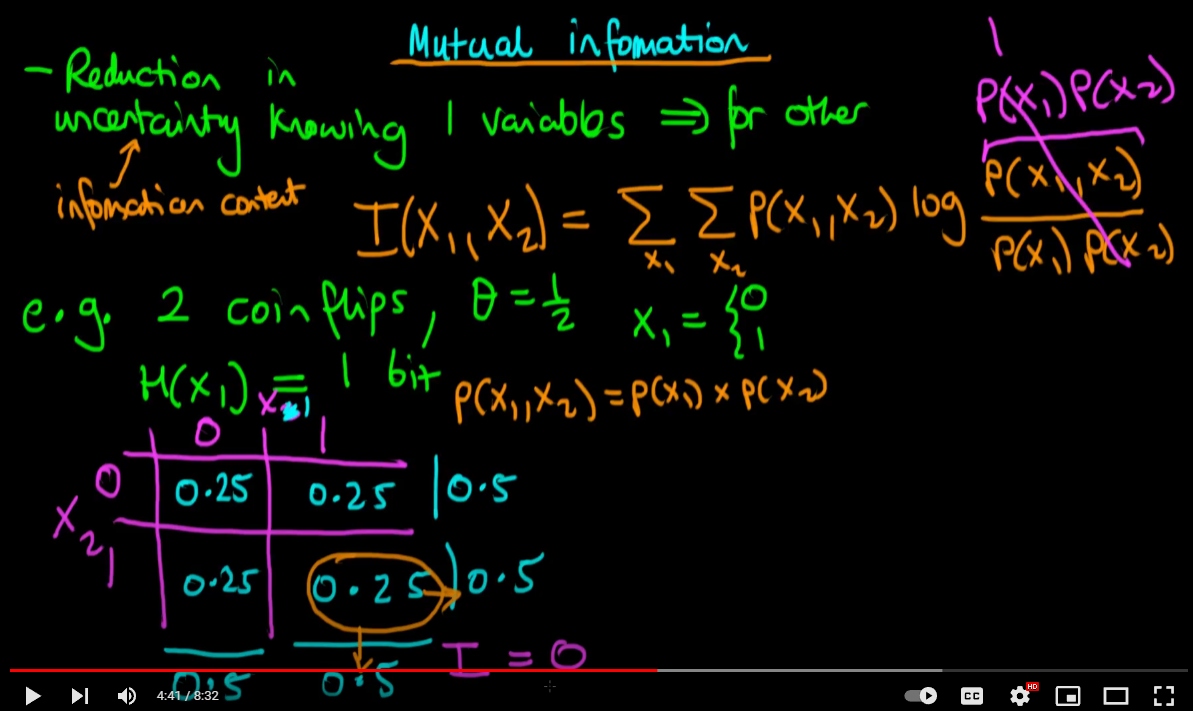 Mutual infomation
- Reduction in
uncertainty knowing 1 variables ⇒ for other
infomation content
1
P(x₁)P(x₂)
I(X₁,X₂) = Σ Σ P(x₁,x₂) log P(x₁,x₂)
x₁ x₂
P(x₁) P(x₂)
e.g. 2 coin flips, θ = 1/2 x₁ = { 0 1
H(x₁) = 1 bit
P(x₁,x₂) = P(x₁) × P(x₂)
x₁
0 1
0 0.25 0.25 | 0.5
x₂
1 0.25 0.25 | 0.5
I = 0
0.5 0.5
4:41 / 8:32
CC
HD